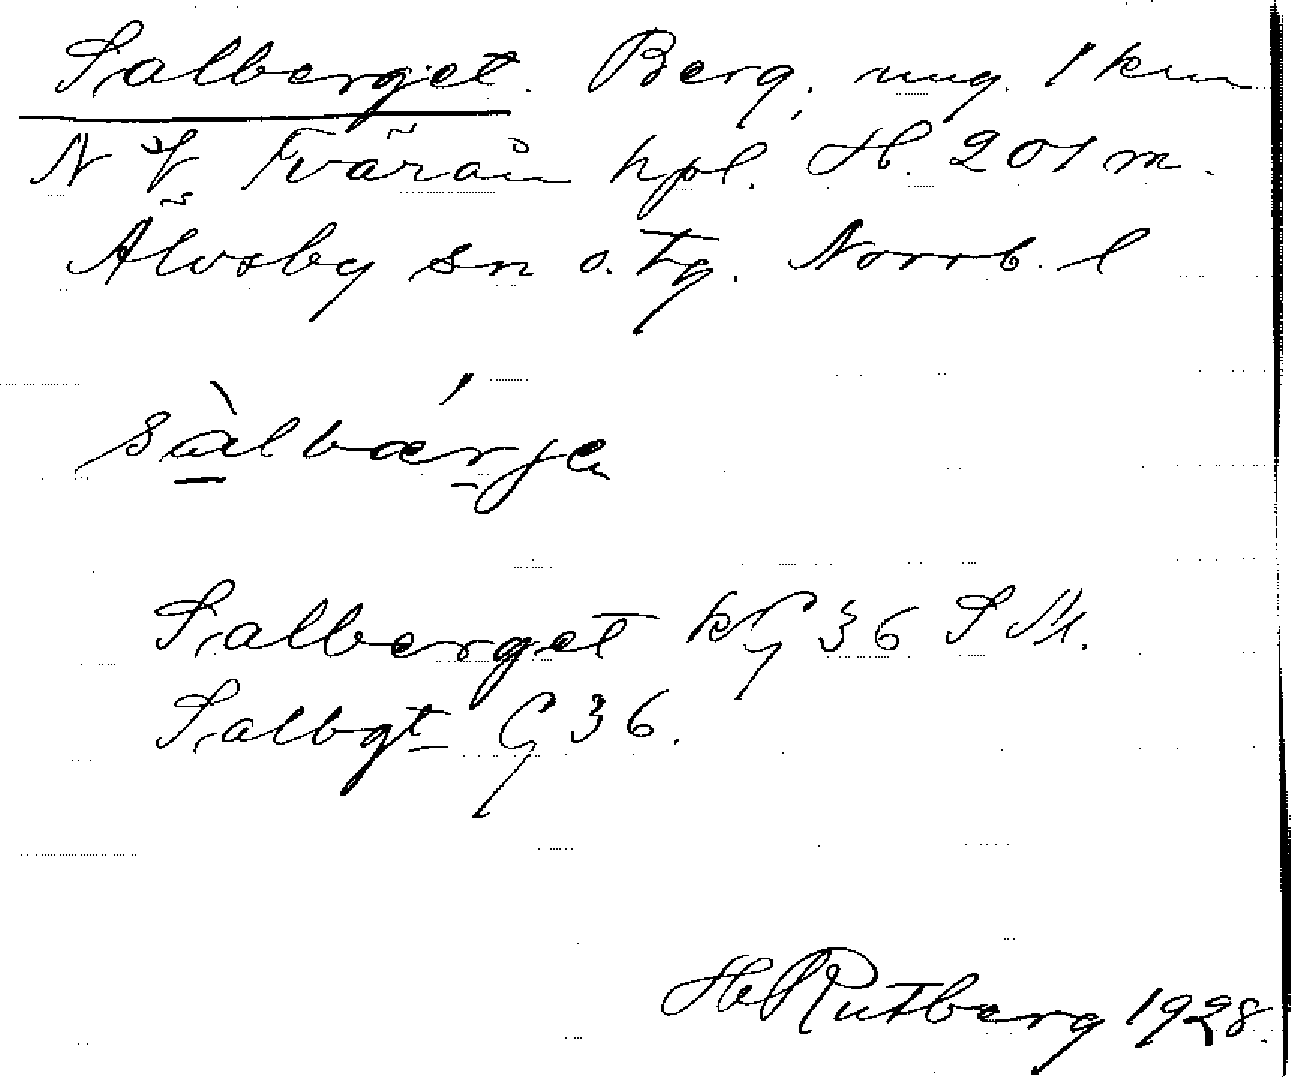 Salberget. Berg, ung. 1 km
N of Tväråns hpl. H. 201 m.
Älvsby sn o. tg. Norrb. l
sàlbærje
Salberget kG 36 S M.
Salbgt G 36.
H Rutberg 1928.